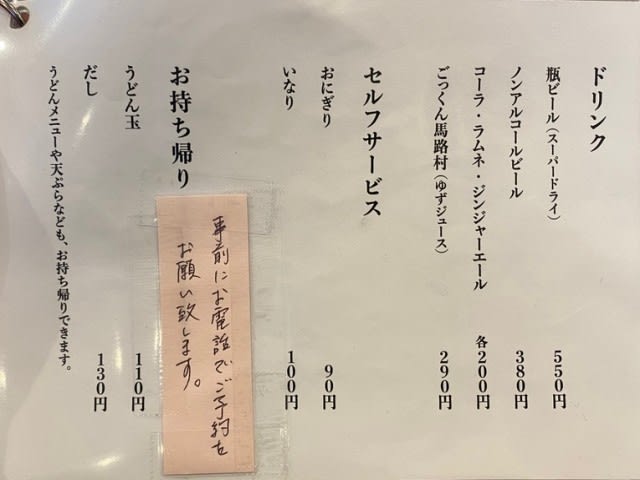 ドリンク
瓶ビール（スーパードライ） 550円
ノンアルコールビール 380円
コーラ・ラムネ・ジンジャーエール 各200円
ごっくん馬路村（ゆずジュース） 290円
セルフサービス
おにぎり 90円
いなり 100円
お持ち帰り
事前にお電話でご予約を
お願い致します。
うどん玉 110円
だし 130円
うどんメニューや天ぷらなども、お持ち帰りできます。